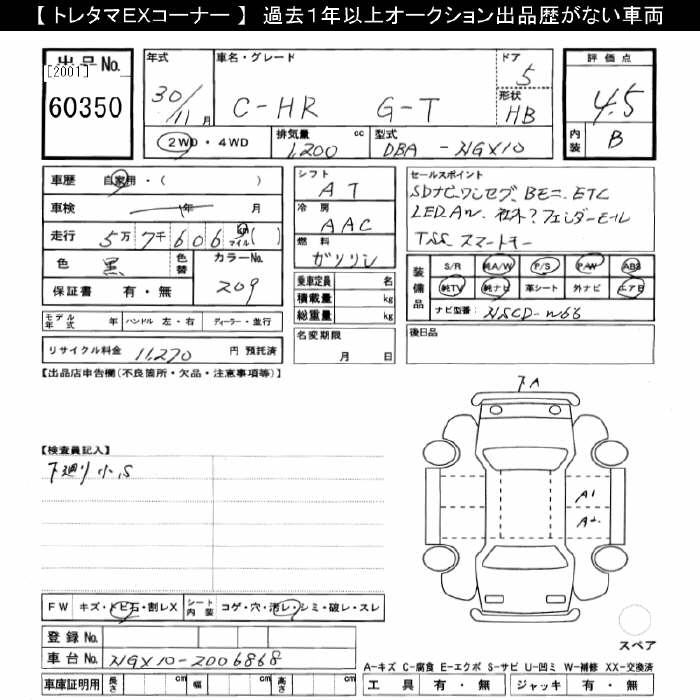 【 トレタマEXコーナー 】 過去1年以上オークション出品歴がない車両
出品No. [2001] 60350
年式 30/11月
車名・グレード C-HR G-T
ドア 5
形状 HB
評価点 4.5
内装 B
2WD・4WD
排気量 1,200 cc
型式 DBA - NGX10
車歴 自家用・( )
車検 年 月
走行 5万7千606 km マイル ( )
色 黒 色替 カラーNo. 209
保証書 有・無
モデル年式 年 ハンドル 左・右 ディーラー・並行
リサイクル料金 11,270 円 預託済
シフト AT
冷房 AAC
燃料 ガソリン
乗車定員 名
積載量 kg
総重量 kg
名変期限 月 日
セールスポイント
SDナビ、ワンセグ、BモニETC
LED、AW、社外?フェンダーモール
TSS、スマートキー
装備品 S/R 純A/W P/S P/W ABS
純TV 純ナビ 革シート 外ナビ エアB
ナビ型番: NSCD-W66
後日品
【出品店申告欄(不良箇所・欠品・注意事項等)】
【検査員記入】
下廻り小S
下A
A1
A2
FW キズ・トビ石・割レX シート内装 コゲ・穴・汚レ・シミ・破レ・スレ
登録No.
車台No. NGX10-2006868
車庫証明用 長さ cm 幅 cm 高さ cm
スペア
A-キズ C-腐食 E-エクボ S-サビ U-凹ミ W-補修 XX-交換済
工具 有・無 ジャッキ 有・無